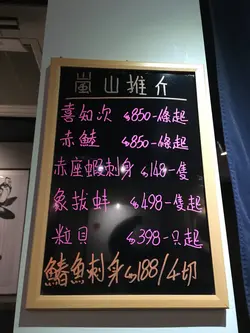 嵐山推介
喜知次 $850-條起
赤鯥 $850-條起
赤座蝦刺身 $148-隻
象拔蚌 $498-隻起
粒貝 $398-只起
鰆魚刺身 $188/4切